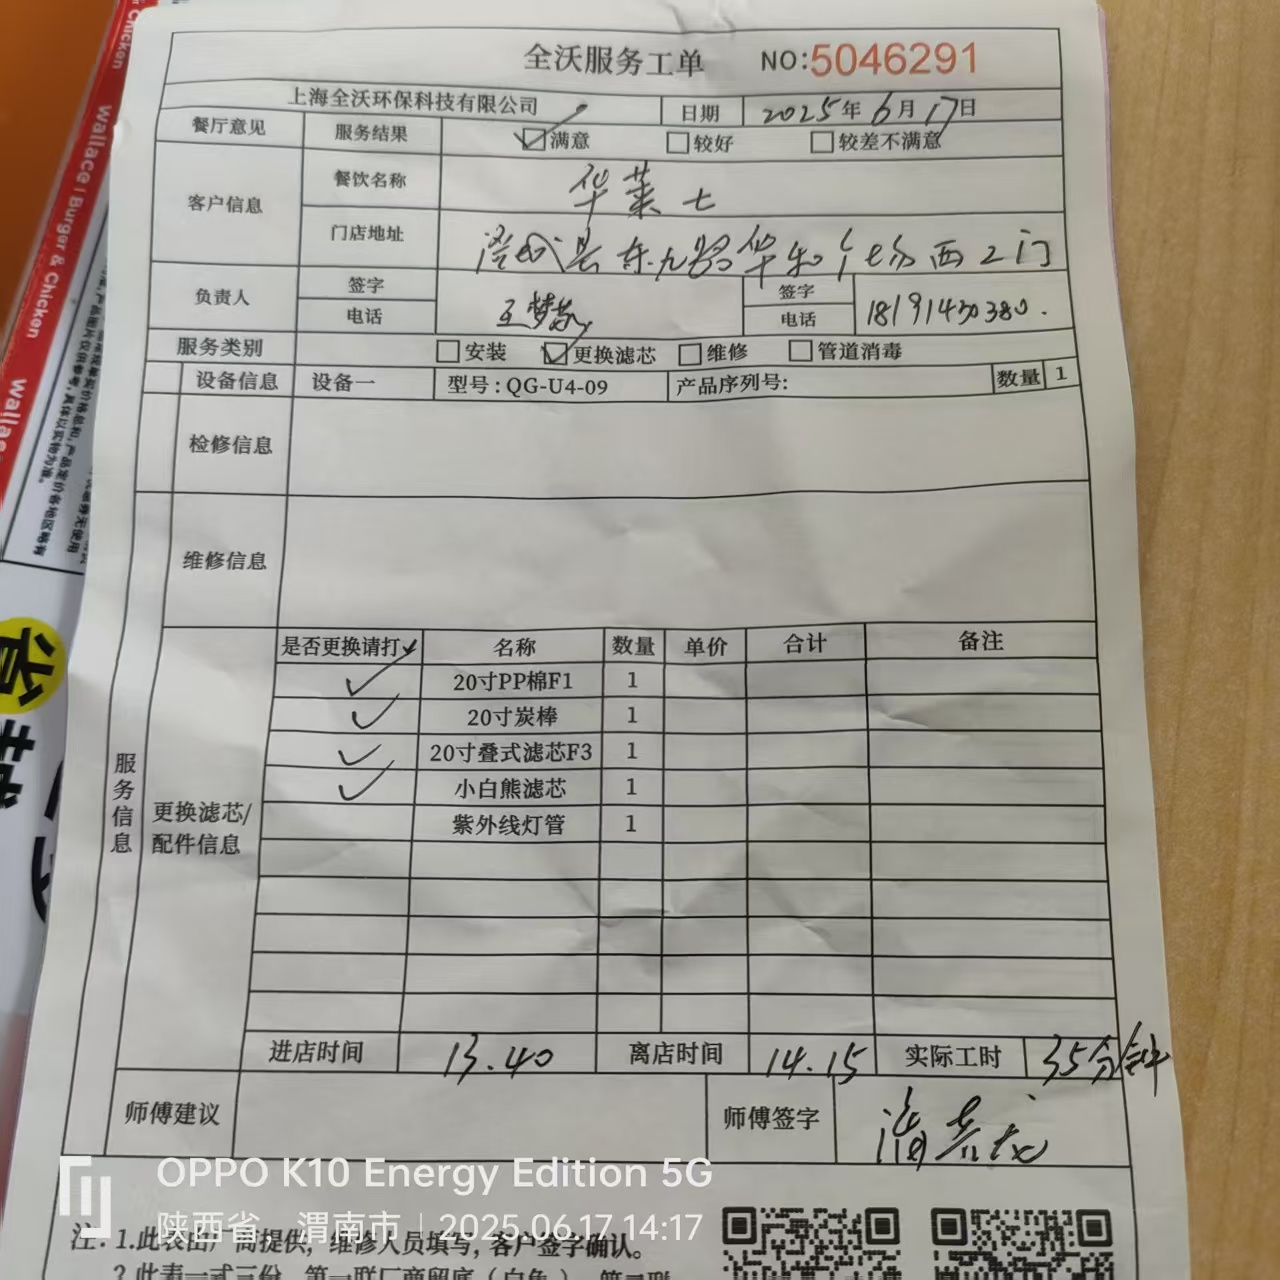 全沃服务工单 NO:5046291
上海全沃环保科技有限公司 日期 2025年6月17日
餐厅意见 服务结果 满意 较好 较差不满意
客户信息 餐饮名称 华莱士
门店地址 澄城县东九路华和广场西2门
负责人 签字 王梦 签字
电话 电话 18191430380.
服务类别 安装 更换滤芯 维修 管道消毒
设备信息 设备一 型号:QG-U4-09 产品序列号: 数量 1
检修信息
维修信息
服务信息
更换滤芯/
配件信息
是否更换请打✓ 名称 数量 单价 合计 备注
✓ 20寸PP棉F1 1
✓ 20寸炭棒 1
✓ 20寸叠式滤芯F3 1
✓ 小白熊滤芯 1
紫外线灯管 1
进店时间 13.40 离店时间 14.15 实际工时 35分钟
师傅建议 师傅签字
注:1.此表由厂商提供,维修人员填写,客户签字确认。
2.此表一式三份,第一联厂商留底(白色)
OPPO K10 Energy Edition 5G
陕西省,渭南市 | 2025.06.17 14:17
Wallace | Burger & Chicken
Chicken
省